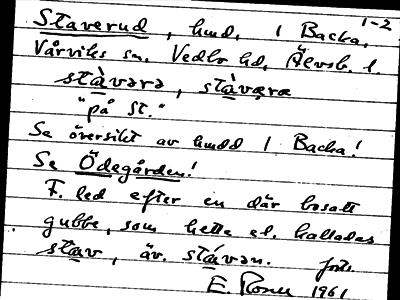 1-2
Staverud, hmd, 1 Backa,
Vårviks sn. Vedbo hd, Älvsb. l.
stàvərə, stàværœ
"på St."
Se översikt av hmdd 1 Backa!
Se Ödegården!
F. led efter en där bosatt
gubbe, som hette el. kallades
stav, äv. stávən. forts.
E. 1961